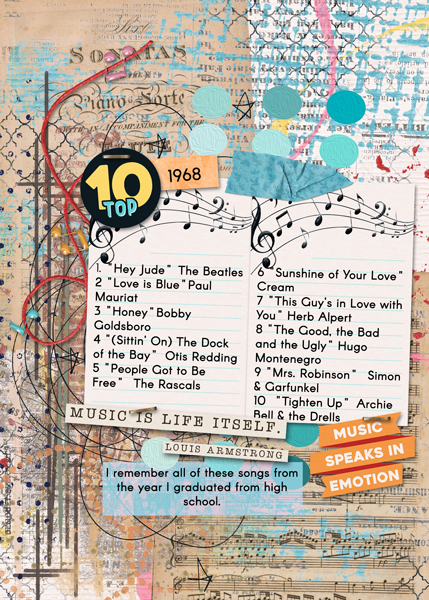 SONATAS
Piano-Forte
WITH AN ACCOMPANIMENT FOR THE
10
TOP
1968
1. "Hey Jude" The Beatles
2 "Love is Blue" Paul
Mauriat
3 "Honey" Bobby
Goldsboro
4 "(Sittin' On) The Dock
of the Bay" Otis Redding
5 "People Got to Be
Free" The Rascals
6 "Sunshine of Your Love"
Cream
7 "This Guy's in Love with
You" Herb Alpert
8 "The Good, the Bad
and the Ugly" Hugo
Montenegro
9 "Mrs. Robinson" Simon
& Garfunkel
10 "Tighten Up" Archie
Bell & the Drells
MUSIC IS LIFE ITSELF.
LOUIS ARMSTRONG
MUSIC
SPEAKS IN
EMOTION
I remember all of these songs from
the year I graduated from high
school.